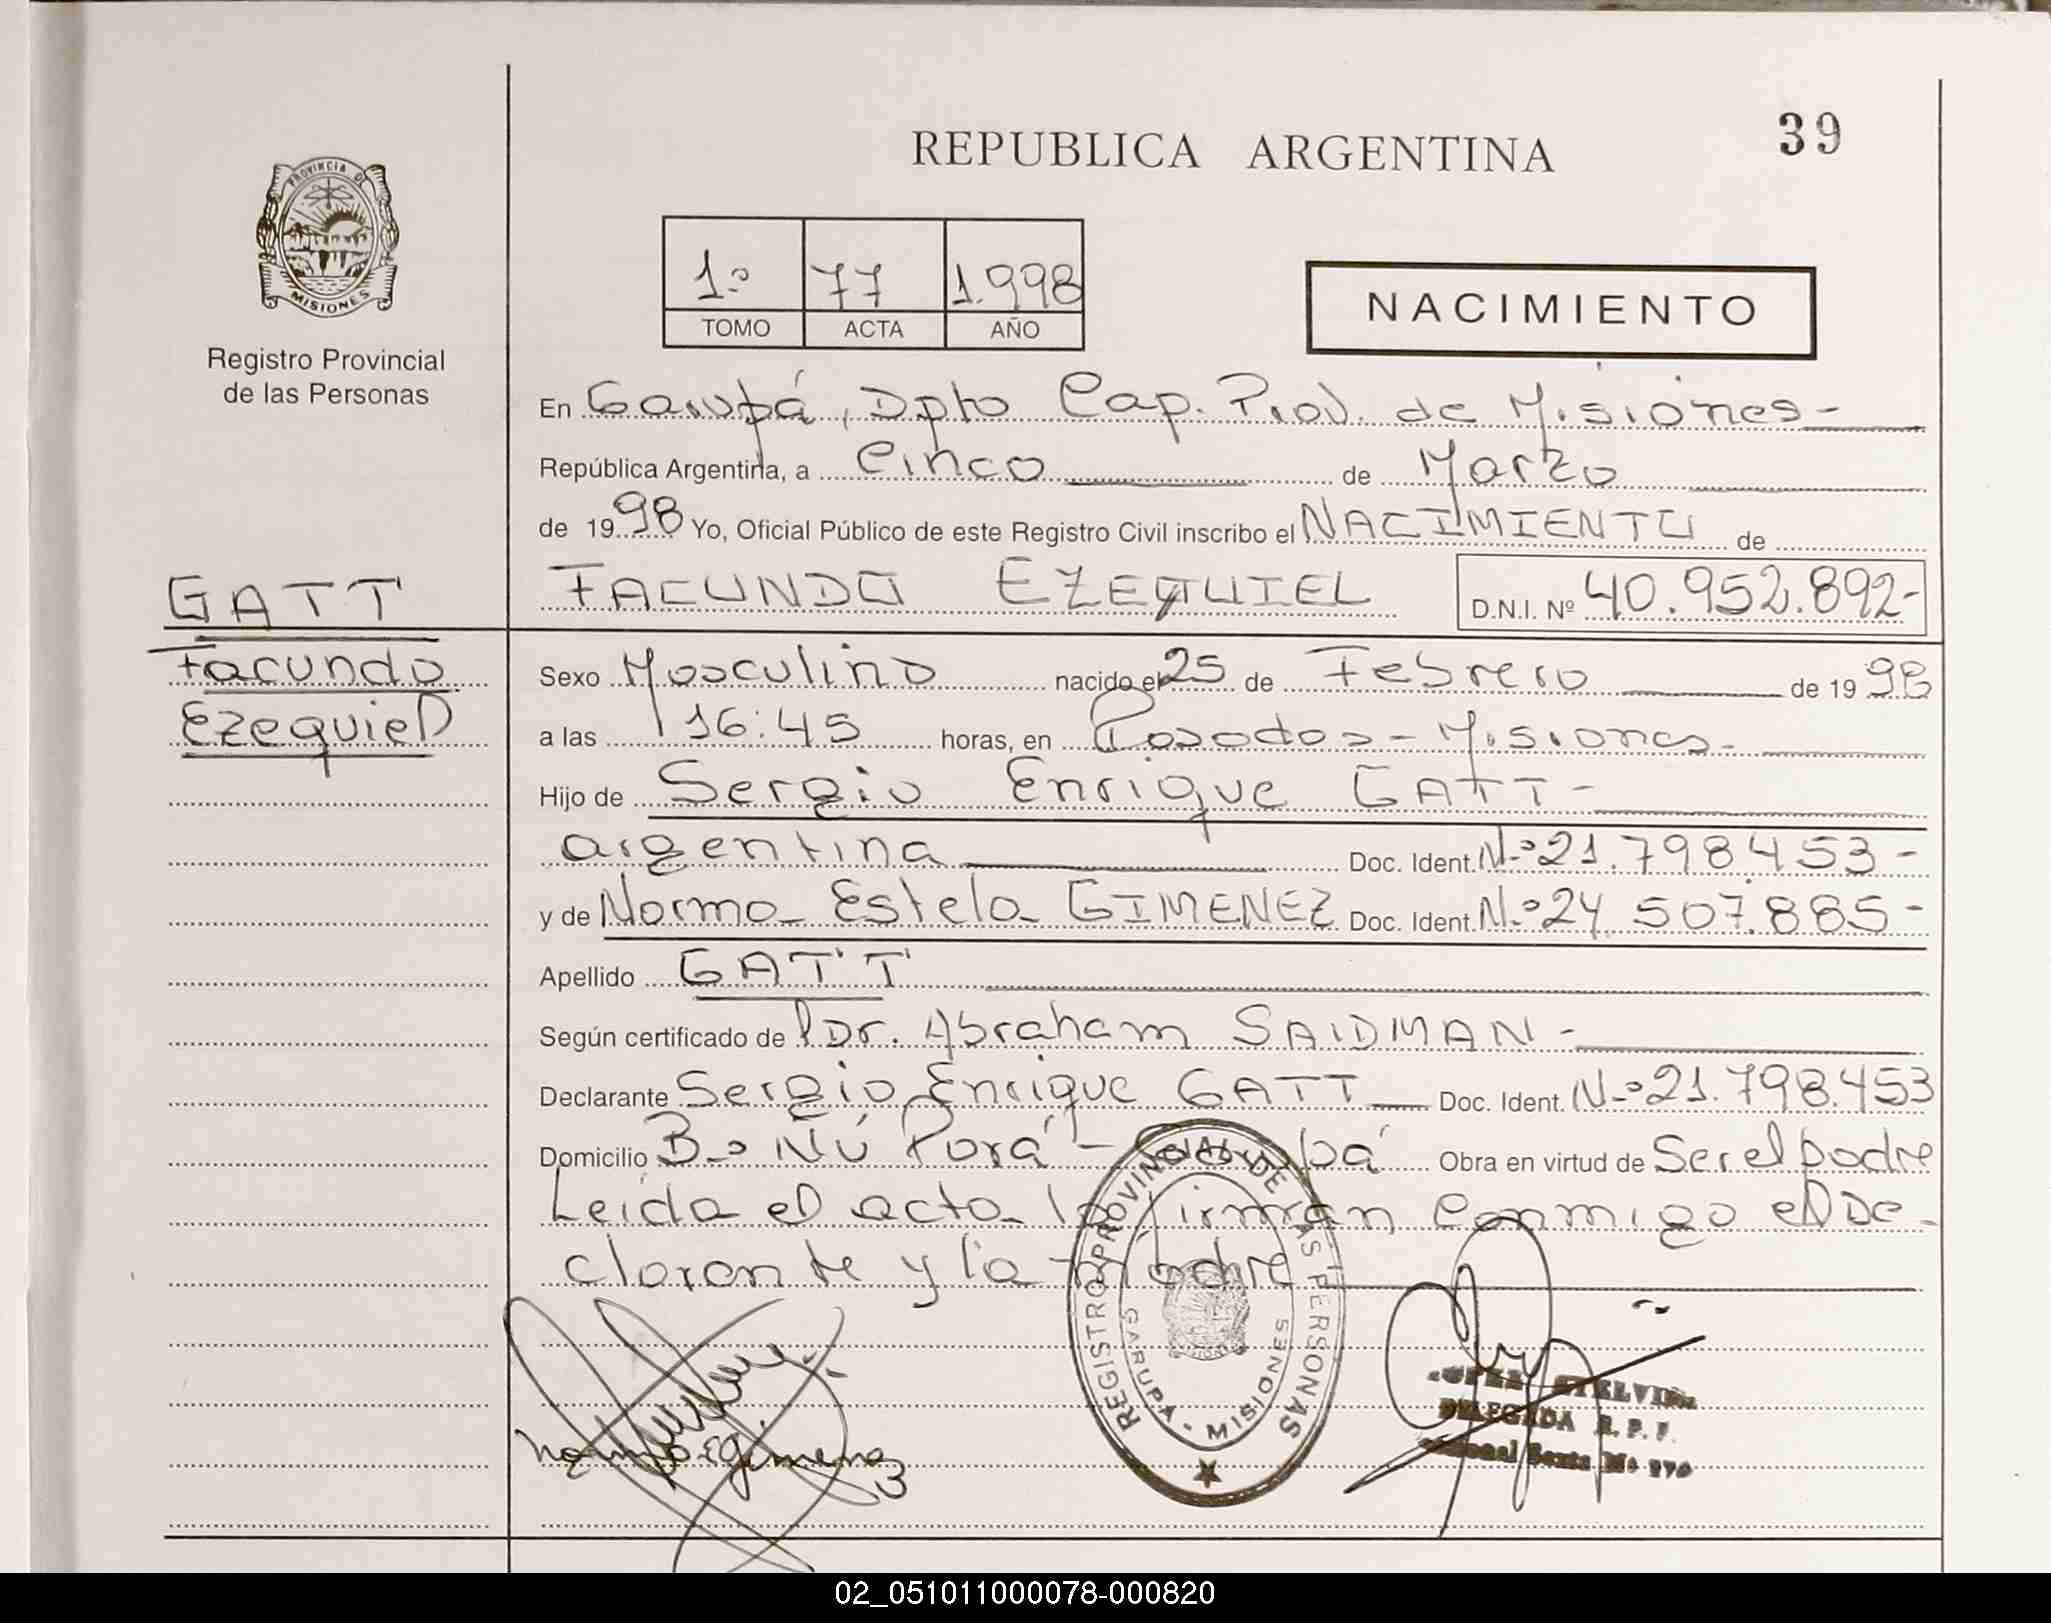 39
REPUBLICA ARGENTINA
PROVINCIA DE
MISIONES
Registro Provincial
de las Personas
1º 77 1.998
TOMO ACTA AÑO
NACIMIENTO
En Garupá, Dpto Cap. Prov. de Misiones-
República Argentina, a Cinco de Marzo
de 1998 Yo, Oficial Público de este Registro Civil inscribo el NACIMIENTO de
GATT
FACUNDO EZEQUIEL D.N.I. Nº 40.952.892-
Facundo
Ezequiel
Sexo Masculino nacido el 25 de Febrero de 1998
a las 16:45 horas, en Posadas - Misiones-
Hijo de Sergio Enrique GATT-
argentina Doc. Ident. Nº 21.798.453-
y de Norma Estela GIMENEZ Doc. Ident. Nº 24.507.885-
Apellido GATT
Según certificado de Dr. Abraham SAIDMAN-
Declarante Sergio Enrique GATT Doc. Ident. Nº 21.798.453
Domicilio Bº Ñú Porá - Garupá Obra en virtud de Ser el padre
Leída el acta la firman conmigo el De-
clarante y la madre
REGISTRO PROVINCIAL DE LAS PERSONAS
GARUPA - MISIONES
Norma E Gimenez
DELEGADA R. P. P.
02_051011000078-000820